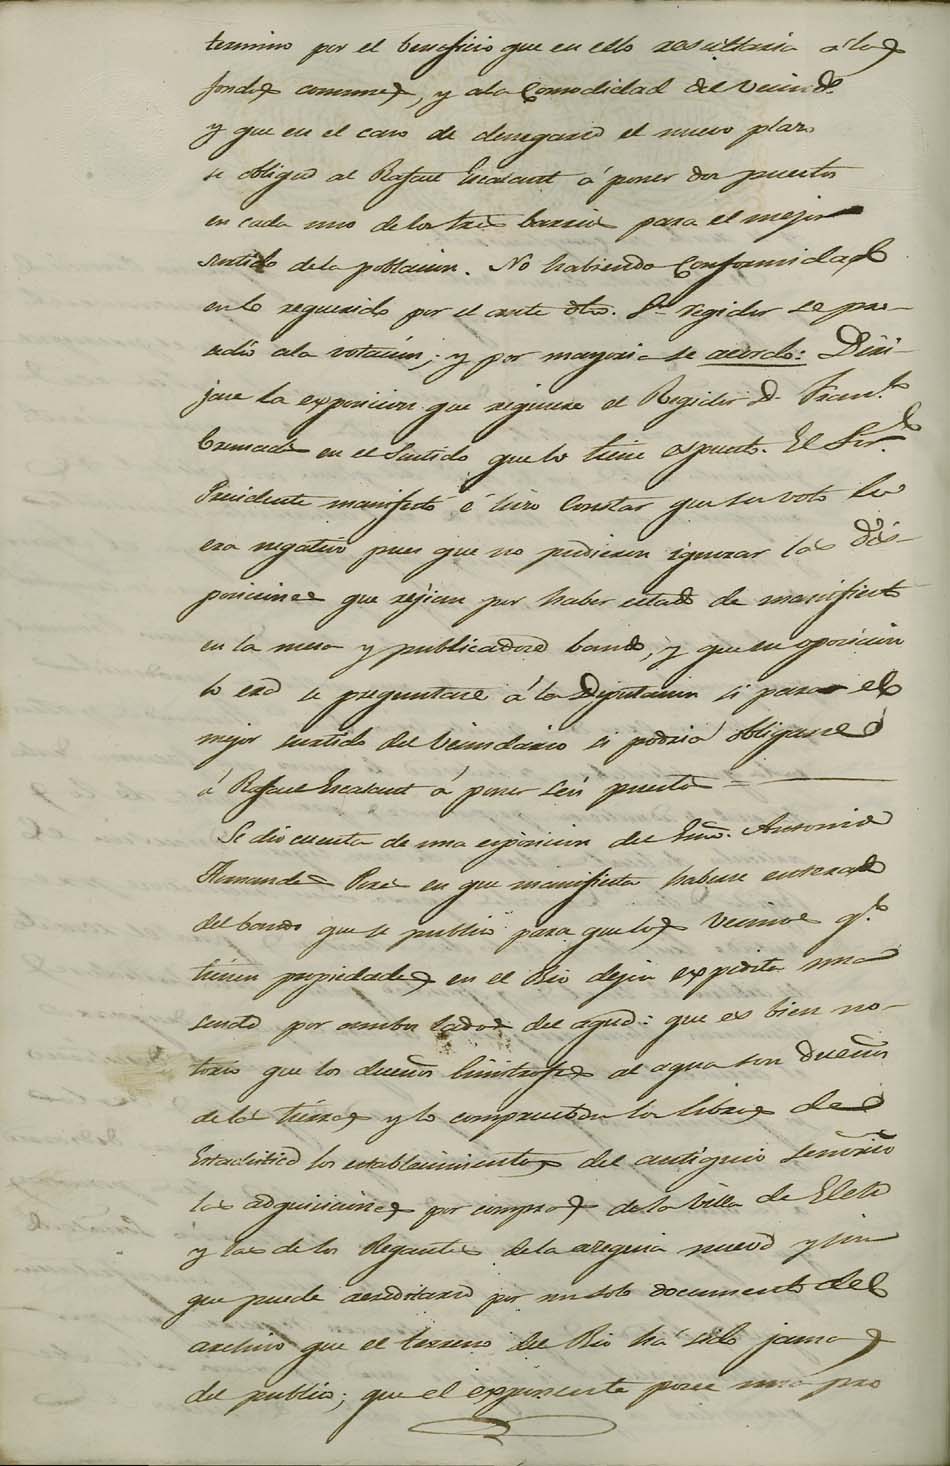 termino por el beneficio que en ello resultaria á los
fondos comunes, y ala Comodidad del Vecind.o
y que en el caso de denegarse el nuevo plazo
se obligue al Rafael Escalant á poner dos puestos
en cada uno de los tres barrios para el mejor
surtido de la poblacion. No habiendo Conformidad
en lo requerido por el ante dho. S.r regidor se pro-
cedió ala votacion; y por mayoria se acordo: Diri-
jase la exposicion que requiere el Regidor D. Fran.co
en el Sentido que lo tiene espuesto. El Sor.
Presidente manifestó é hizo Constar que su voto
era negativo pues que no pudieron ignorar las dis-
posiciones que rejian por haber estado de manifiesto
en la mesa y publicadose bando, y que su oposicion
lo era se preguntase á la Diputacion si para el
mejor surtido del Vecindario si podria obligarse
á Rafael Escalant á poner seis puestos
Se dio cuenta de una esposicion del Escno. Antonio
Hernandes Perez en que manifiesta haberse enterado
del bando que se publicó para que los vecinos q.e
tienen propiedades en el Rio dejen expedita una
senda por ambos lados del agua: que es bien no-
torio que los dueños limitrofes al agua son dueños
de las tierras y lo comprueban los libros de
Estadistica los establecimientos del antiguo Señorio
las adquisiciones por compras de la Villa de Elda
y las de los Regantes de la azequia nueva y sin
que puede acreditarse por un solo documento del
archivo que el terreno del Rio há sido jamas
del publico; que el esponente posee una pro